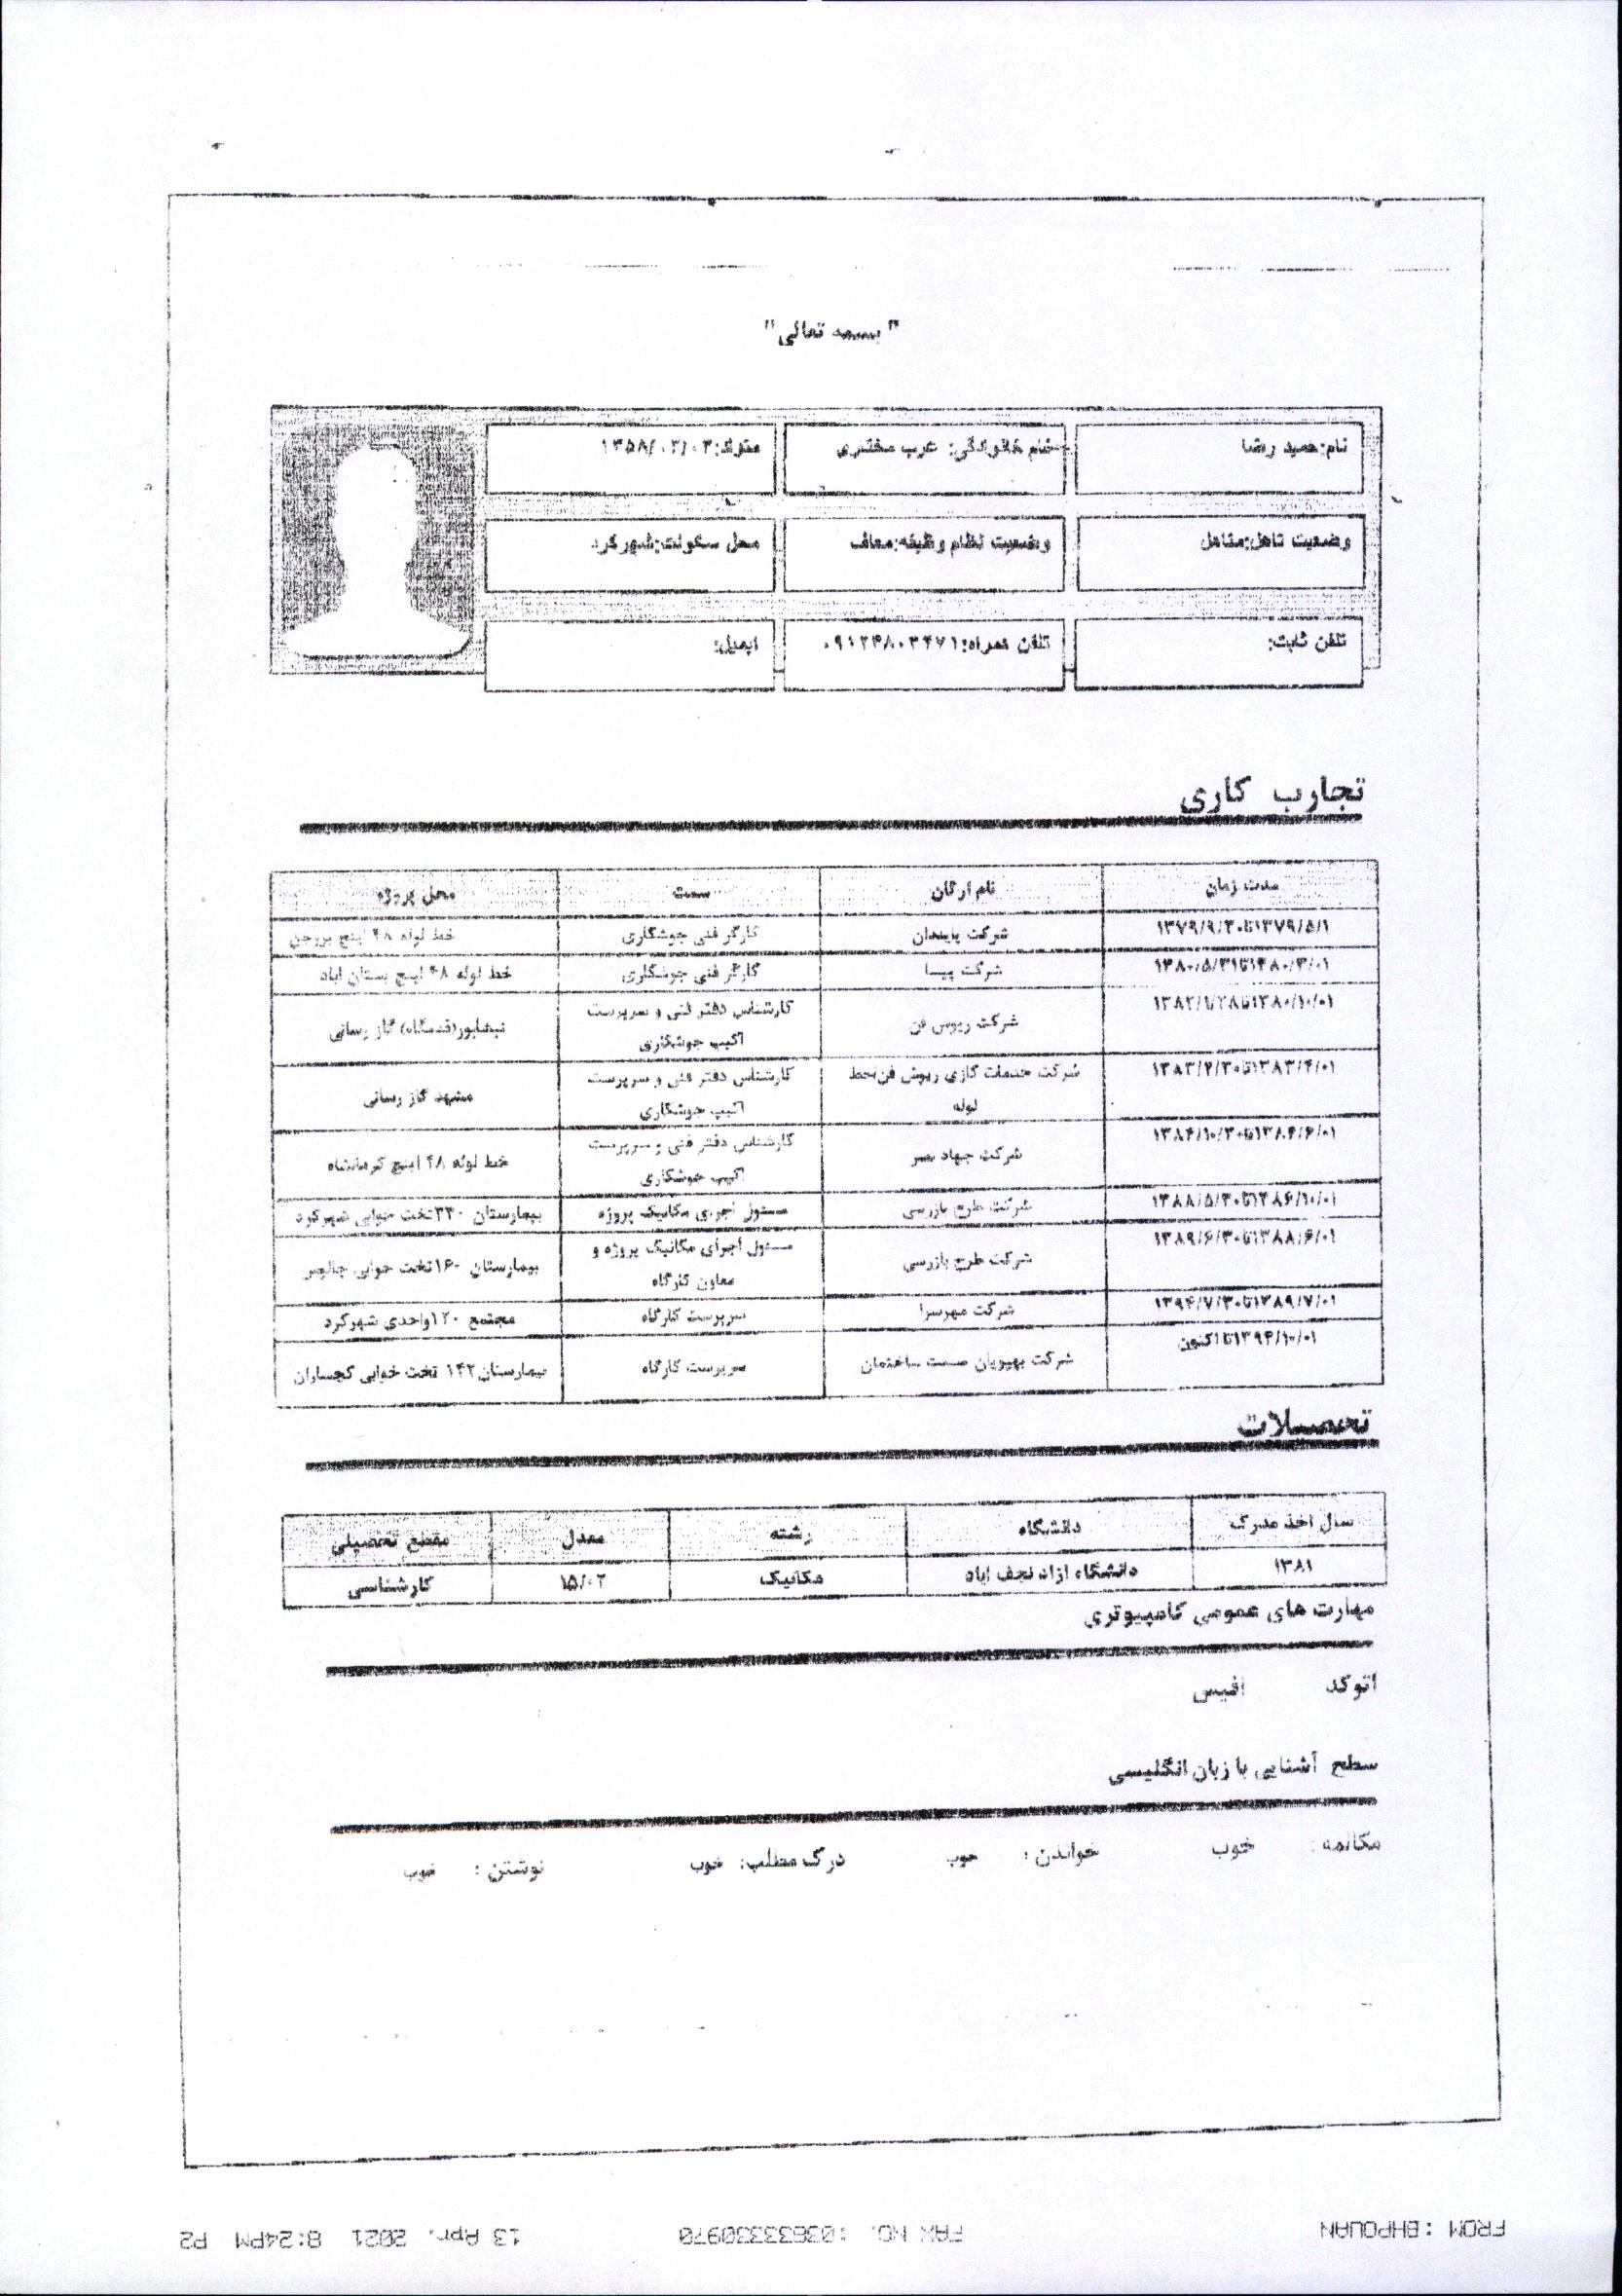 "بسمه تعالی"
نام:حمید رضا
نام خانوادگی: عرب مختاری
متولد:۱۳۵۸/۰۲/۰۳
وضعیت تاهل:متاهل
وضعیت نظام وظیفه:معاف
محل سکونت:شهرکرد
تلفن ثابت:
تلفن همراه:۰۹۱۲۴۸۰۳۴۷۱
ایمیل:
تجارب کاری
مدت زمان نام ارگان سمت محل پروژه
۱۳۷۹/۵/۱تا۱۳۷۹/۹/۳۰ شرکت پایندان کارگر فنی جوشکاری خط لوله ۴۸ اینچ بروجن
شرکت پیسا کارگر فنی جوشکاری خط لوله ۴۸ اینچ بستان اباد
۱۳۸۰/۱۰/۰۱تا شرکت ریوش فن کارشناس دفتر فنی و سرپرست
اکیپ جوشکاری نیشابور(قدمگاه) گاز رسانی
شرکت خدمات گازی ریوش فن/خط
لوله کارشناس دفتر فنی و سرپرست
اکیپ جوشکاری مشهد گاز رسانی
۱۳۸۴/۶/۰۱تا۱۳۸۴/۱۰/۳۰ شرکت جهاد نصر کارشناس دفتر فنی و سرپرست
اکیپ جوشکاری خط لوله ۴۸ اینچ کرمانشاه
۱۳۸۶/۱۰/۰۱تا۱۳۸۸/۵/۳۰ شرکت طرح بازرسی مسئول اجرای مکانیک پروژه بیمارستان تخت خوابی شهرکرد
۱۳۸۸/۶/۰۱تا۱۳۸۹/۶/۳۰ شرکت طرح بازرسی مسئول اجرای مکانیک پروژه و
معاون کارگاه بیمارستان ۱۶۰تخت خوابی
۱۳۸۹/۷/۰۱تا۱۳۹۴/۷/۳۰ شرکت مهرسرا سرپرست کارگاه مجتمع ۱۲۰واحدی شهرکرد
۱۳۹۴/۱۰/۰۱تا اکنون شرکت بهپویان صنعت ساختمان سرپرست کارگاه بیمارستان۱۴۲ تخت خوابی گچساران
تحصیلات
سال اخذ مدرک دانشگاه رشته معدل مقطع تحصیلی
۱۳۸۱ دانشگاه ازاد نجف اباد مکانیک ۱۵/۰۲ کارشناسی
مهارت های عمومی کامپیوتری
اتوکد افیس
سطح آشنایی با زبان انگلیسی
مکالمه: خوب خواندن: خوب درک مطلب: خوب نوشتن: خوب
FROM :BHPOUAN FAX NO. :03633330970 13 Apr. 2021 8:24PM P2